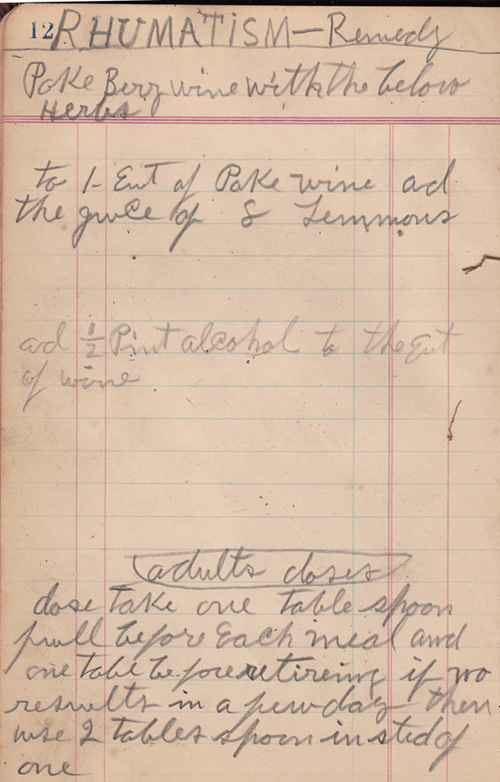 12 RHUMATISM - Remedy
Poke Berry wine with the below
Herbs
to 1 - Eut of Poke wine ad
the juice of 8 Lemmons
ad 1/2 Pint alcohol to the Eut
of wine
adults doses
dose take one table spoon
full before Each meal and
one tabl before retireing if no
results in a few days then
use 2 tables spoon in sted of
one